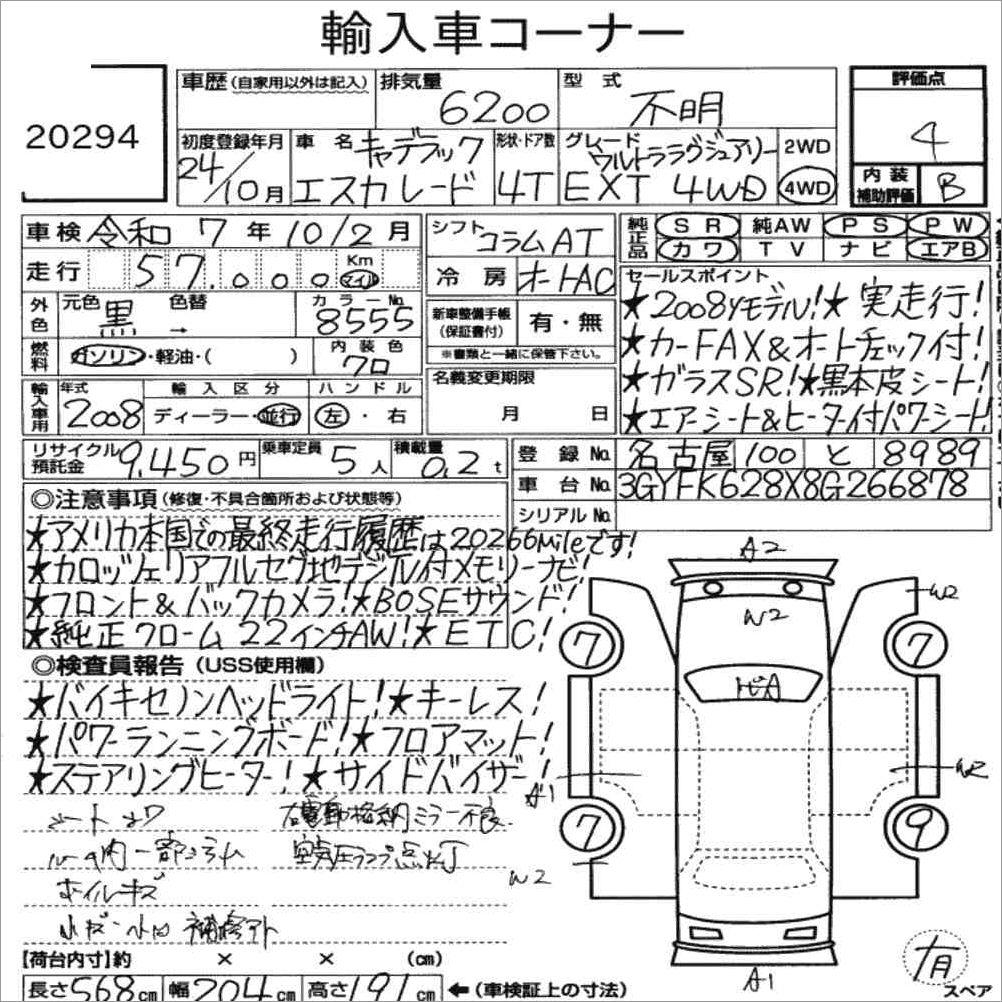 輸入車コーナー
20294
車歴(自家用以外は記入)
排気量 6200
型式 不明
評価点 4
初度登録年月 24/10月
車名 キャデラック エスカレード
形状・ドア数 4T
グレード ウルトララグジュアリー EXT 4WD
2WD 4WD
内装補助評価 B
車検 令和 7年 10/2月
シフト コラムAT
純正品 SR 純AW PS PW
カワ TV ナビ エアB
走行 57,000 Km マイル
冷房 オートAC
セールスポイント
外色 元色 黒 色替 → カラーNo. 8555
★2008yモデル!★実走行!
新車整備手帳(保証書付) 有・無
※書類と一緒に保管下さい。
★カーFAX&オートチェック付!
燃料 ガソリン・軽油・( )
内装色 クロ
★ガラスSR!★黒本皮シート!
輸入車用 年式 2008
輸入区分 ディーラー・並行
ハンドル 左・右
名義変更期限 月 日
★エアーシート&ヒーター付パワーシート!
リサイクル預託金 9,450円
乗車定員 5人
積載量 0.2t
登録No. 名古屋 100 と 8989
車台No. 3GYFK628X8G266878
シリアルNo.
◎注意事項(修復・不具合箇所および状態等)
★アメリカ本国での最終走行履歴は20266Mileです!
★カロッツェリアフルセグ地デジTV付メモリーナビ!
★フロント&バックカメラ!★BOSEサウンド!
★純正クローム22インチAW!★ETC!
◎検査員報告(USS使用欄)
★バイキセノンヘッドライト!★キーレス!
★パワーランニングボード!★フロアマット!
★ステアリングヒーター!★サイドバイザー!
右電動格納ミラー不良
空気圧ランプ点灯
ホイルキズ
補修アト
A2
W2
W2
7
7
W2
A1
7
9
W2
A1
有
スペア
【荷台内寸】約 × × (cm)
長さ568cm 幅204cm 高さ191cm ←(車検証上の寸法)